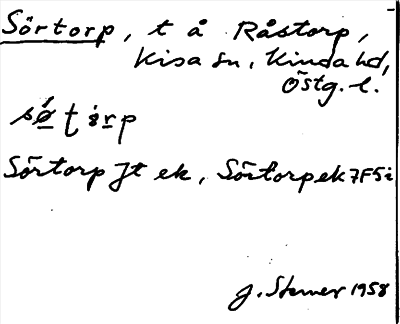 Sörtorp, t å Råstorp,
Kisa sn, Kinda hd,
Östg. l.
Sörtorp Jt ek, Sörtorp ek 7F5i
J. Sterner 1958